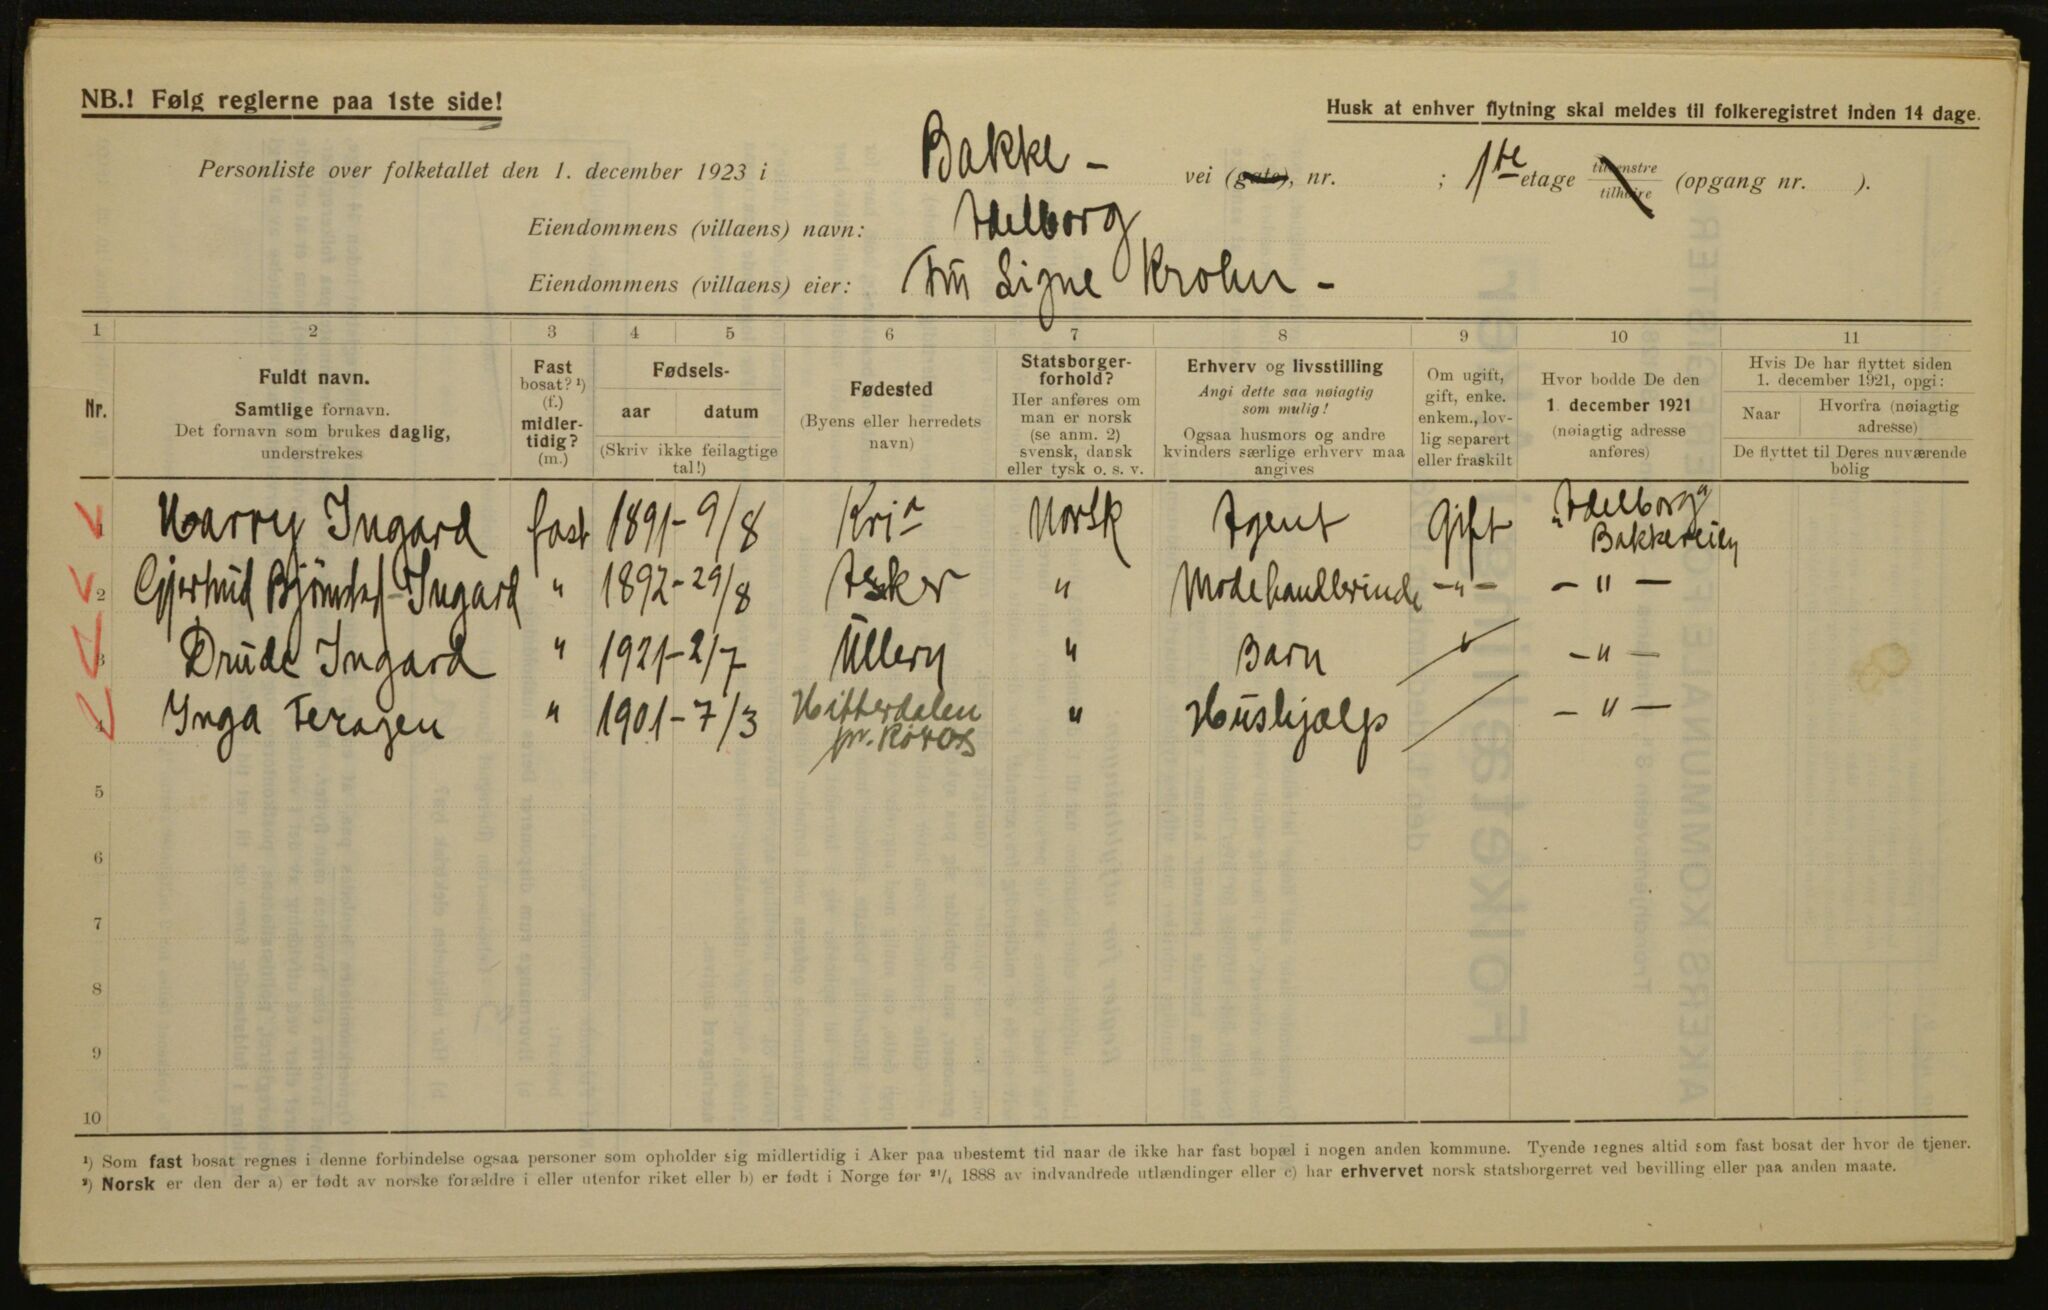 NB.! Følg reglerne paa 1ste side!
Husk at enhver flytning skal meldes til folkeregistret inden 14 dage.
Personliste over folketallet den 1. december 1923 i Bakke - vei (gate), nr. ; 1ste etage tilvenstre tilhøire (opgang nr. ).
Eiendommens (villaens) navn: Adelborg
Eiendommens (villaens) eier: Frü Signe Krohn -
1 2 3 4 5 6 7 8 9 10 11
Nr.
Fuldt navn.
Samtlige fornavn.
Det fornavn som brukes daglig,
understrekes
Fast
bosat? ¹)
(f.)
midler-
tidig?
(m.)
Fødsels-
aar datum
(Skriv ikke feilagtige
tal!)
Fødested
(Byens eller herredets
navn)
Statsborger-
forhold?
Her anføres om
man er norsk
(se anm. 2)
svensk, dansk
eller tysk o. s. v.
Erhverv og livsstilling
Angi dette saa nøiagtig
som mulig!
Ogsaa husmors og andre
kvinders særlige erhverv maa
angives
Om ugift,
gift, enke.
enkem., lov-
lig separert
eller fraskilt
Hvor bodde De den
1. december 1921
(nøiagtig adresse
anføres)
Hvis De har flyttet siden
1. december 1921, opgi:
Naar Hvorfra (nøiagtig
adresse)
De flyttet til Deres nuværende
bolig
1 Harry Ingard fast 1891 - 9/8 Kria Norsk Agent Gift "Adelborg"
Bakkeveien
2 Gjertrud Bjömstad-Ingard " 1892 - 29/8 Asker " Modehandlerinde - " - - " -
3 Drüde Ingard " 1921 - 2/7 Üllern " Barn - " -
4 Inga Feragen " 1901 - 7/3 Hitterdalen " Hüshjælp - " -
pr. Röros
5
6
7
8
9
10
¹) Som fast bosat regnes i denne forbindelse ogsaa personer som opholder sig midlertidig i Aker paa ubestemt tid naar de ikke har fast bopæl i nogen anden kommune. Tyende regnes altid som fast bosat der hvor de tjener.
²) Norsk er den der a) er født av norske forældre i eller utenfor riket eller b) er født i Norge før 21/4 1888 av indvandrede utlændinger eller c) har erhvervet norsk statsborgerret ved bevilling eller paa anden maate.